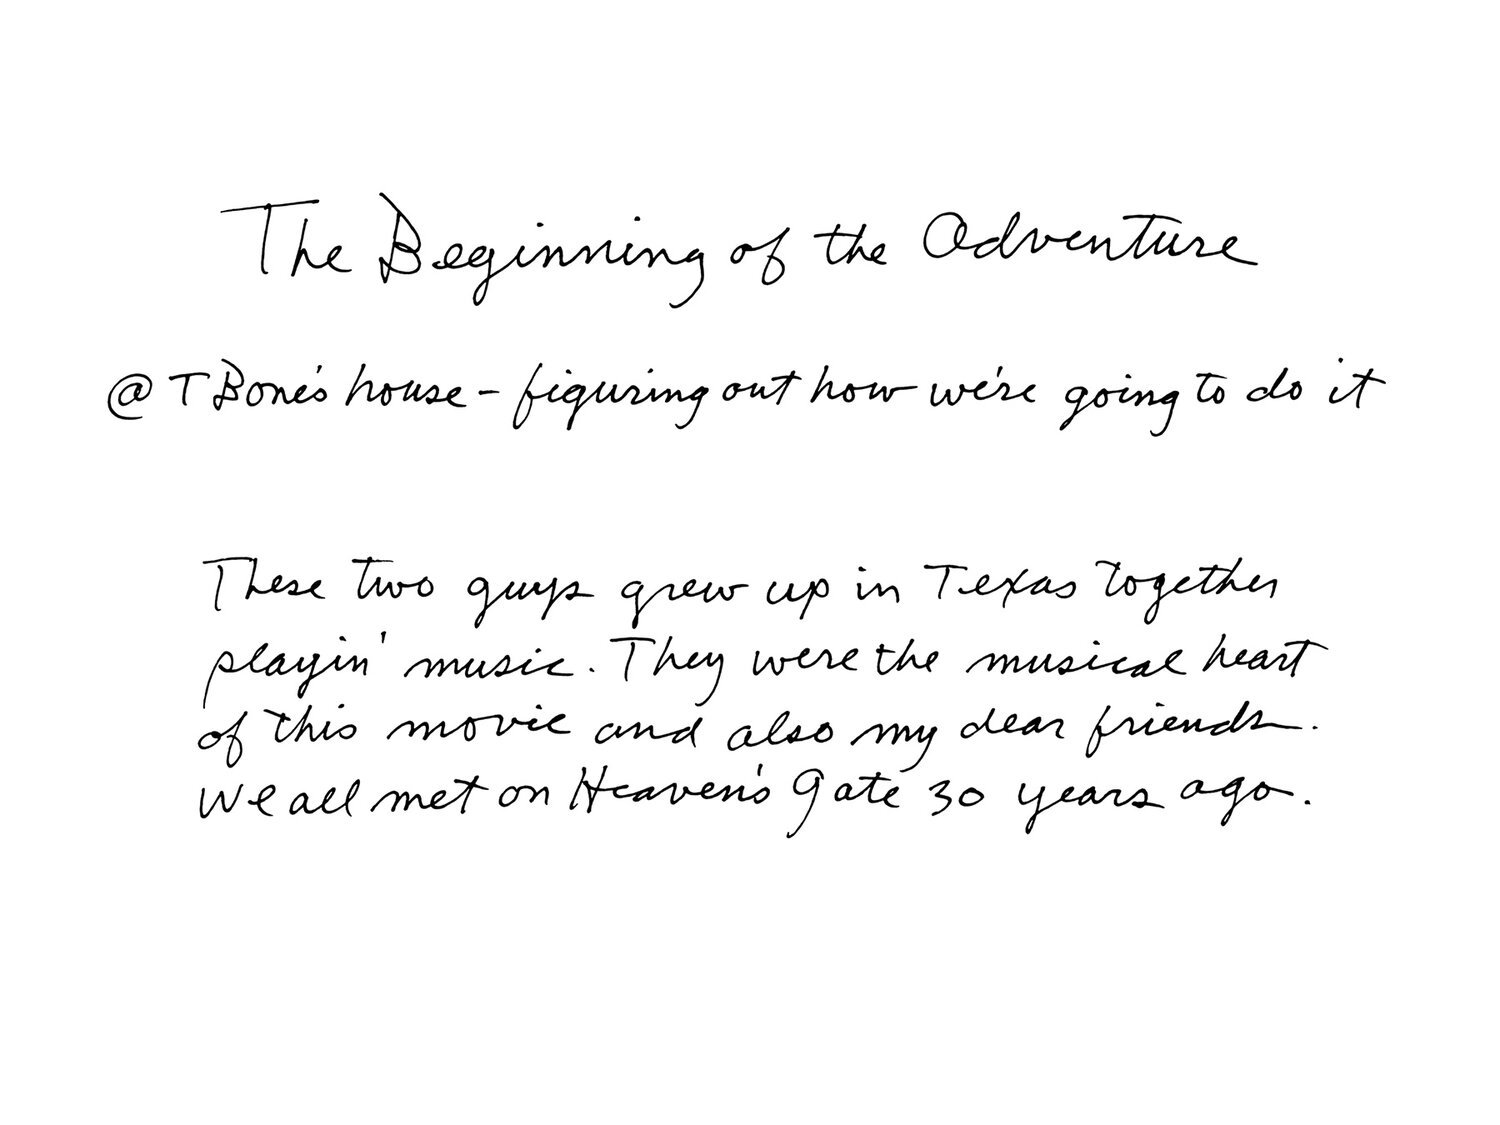 The Beginning of the Adventure
@ T Bone's house - figuring out how we're going to do it
These two guys grew up in Texas together
playin' music. They were the musical heart
of this movie and also my dear friends.
We all met on Heaven's Gate 30 years ago.